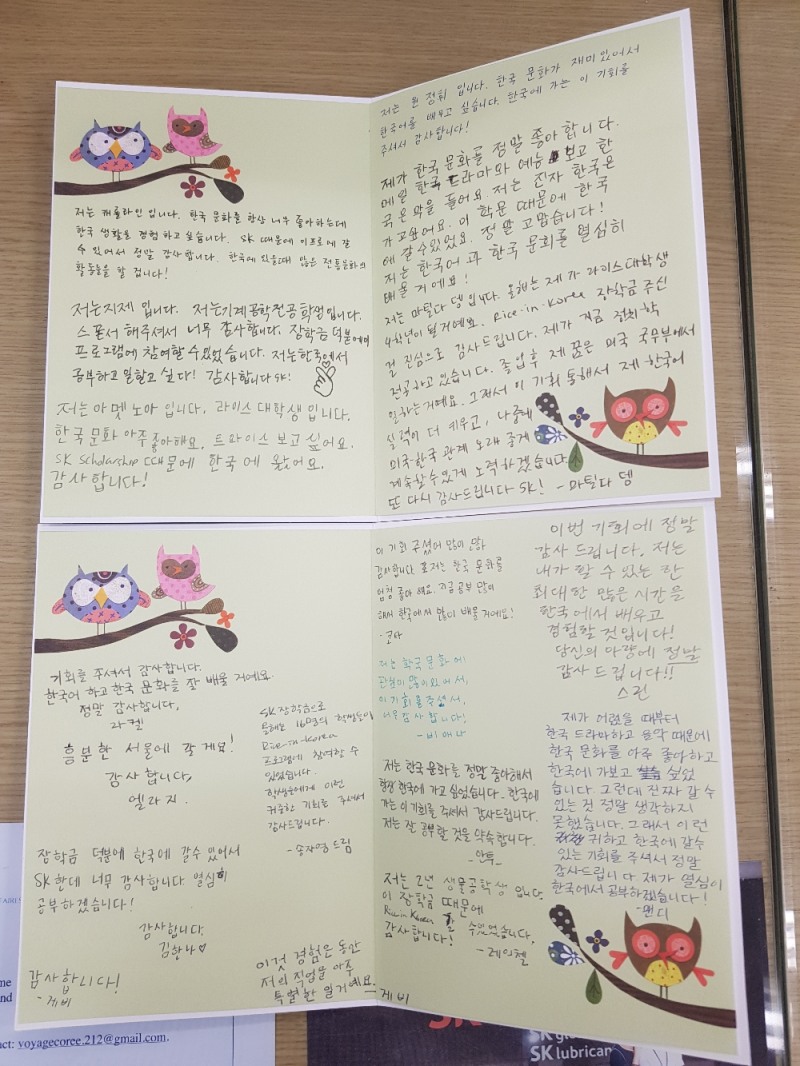 저는 캐롤라인 입니다. 한국 문화를 항상 너무 좋아하는데
한국 생활을 경험하고 싶습니다. SK 때문에 이프로에 갈
수 있어서 정말 감사합니다. 한국에 있을때 많은 전통문화의
활동들을 할 겁니다!
저는지제 입니다. 저는기계공학전공학생입니다.
스폰서 해주셔서 너무 감사합니다. 장학금덕분에
프로그램에 참여할수있었습니다. 저는한국에서
공부하고 일할고 싶다! 감사합니다 SK!
저는 아멧 노아 입니다, 라이스 대학생 입니다.
한국 문화 아주 좋아해요. 트와이스 보고 싶어요.
SK Scholarship 때문에 한국에 왔어요.
감사합니다!
저는 원 정휘 입니다. 한국 문화가 재미있어서
한국어를 배우고 싶습니다. 한국에 가는 이 기회를
주셔서 감사합니다!
제가 한국 문화를 정말 좋아 합니다.
매일 한국 드라마와 예능 보고 한
국 음악을 들어요. 저는 진짜 한국은
가고싶어요. 이 학문 때문에 한국
에 갈 수있었요. 정말 고맙습니다!
저는 한국어 과 한국 문회를 열심히
배울 거에요!
저는 마틸다 뎅 입니다. 올해는 제가 라이스대학생
4학년이 될거예요. Rice-in-Korea 장학금 주신
걸 진심으로 감사드립니다. 제가 지금 정치학
전공하고 있습니다. 졸업후 제 꿈은 미국 국무부에서
일하는거예요. 그래서 이 기회 통해서 제 한국어
실력이 더 키우고, 나중에
미국·한국 관계 오래 좋게
계속할수있게 노력하겠습니다
또 다시 감사드립니다 SK! - 마틸다 뎅
기회를 주셔서 감사합니다.
한국어 하고 한국 문화를 잘 배울 거예요.
정말 감사합니다,
라켈
흥분한 서울에 갈게요!
감사합니다,
엘라지.
장학금 덕분에 한국에 갈수 있어서
SK한테 너무 감사합니다 열심히
공부하겠습니다!
감사합니다,
김한나♡
감사합니다!
-계비
SK장학금으로
올해는 16명의 학생들이
Rice-in-Korea
프로그램에 참여할 수
있었습니다.
학생들에게 이런
귀중한 기회를 주셔서
감사드립니다.
- 송자영 드림
이것 경험은 동안
저의 직업을 아주
특별한 일거예요.
-계비
이 기회 주셨어 많이 많이
감사합니다. 저는 한국 문화를
엄청 좋아 해요. 지금 공부 많이
해서 한국에서 많이 배울 거에요!
-코다
저는 한국 문화에
관심이 많이있어서,
이 기회을주셔서,
너무감사 합니다!
-비애나
저는 한국 문화를 정말 좋아해서
한국에 가고 싶었습니다. 한국에
가는 이 기회를 주셔서 감사드립니다.
저는 잘 공부할 것을 약속합니다.
-안투
저는 2년 생물공학생 입니다
이 장학금 때문에
Rice in Korea 수있었습니다.
감사합니다!
- 레이첼
이번 기회에 정말
감사 드립니다, 저는
내가 할 수 있는 한
최대한 많은 시간을
한국에서 배우고
경험할 것입니다!
당신의 아량에 정말
감사 드립니다!!
스린
제가 어렸을 때부터
한국 드라마하고 음악 때문에
한국 문화를 아주 좋아하고
한국에 가보고 싶었
습니다. 그런데 진짜 갈 수
있는 건 정말 생각하지
못했습니다. 그래서 이런
귀하고 한국에 갈수
있는 기회를 주셔서 정말
감사드립니다 제가 열심이
한국에서 공부하겠습니다!
-맨디
me
nd
act: voyagecoree.212@gmail.com.
SK
SK
SK lubrican